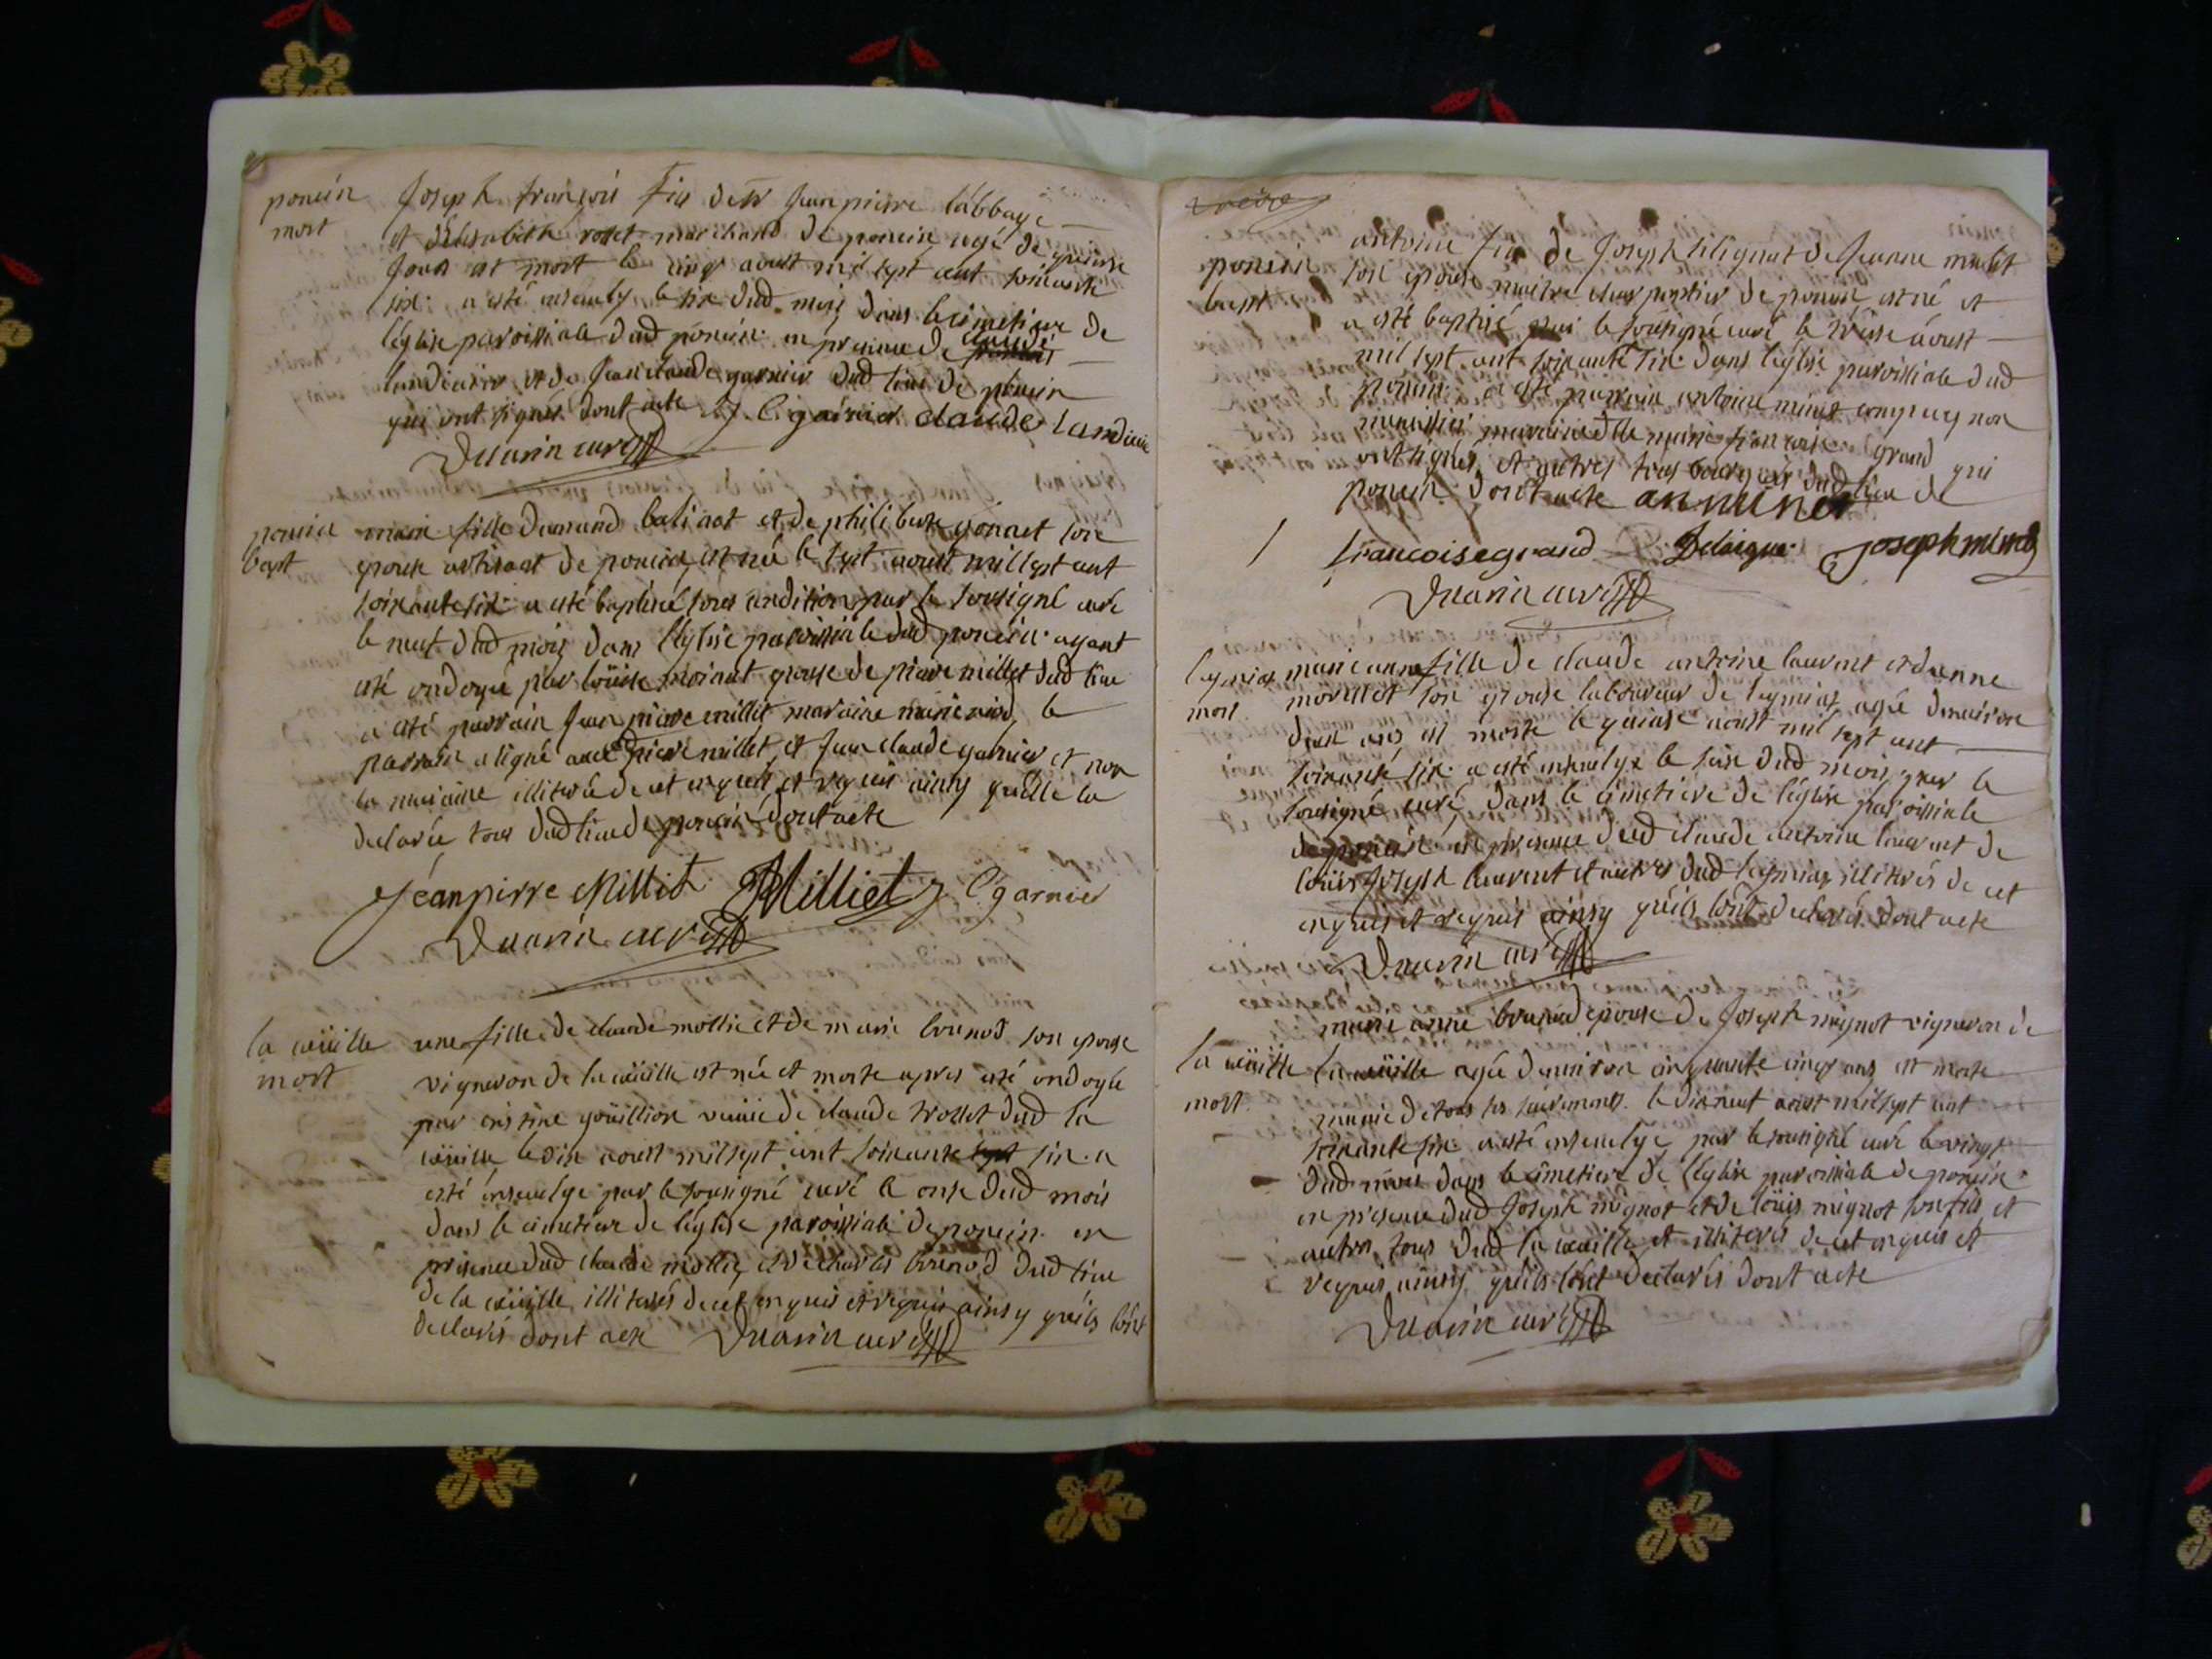 poncin
mort
Joseph françois fils de Sr Jean pierre labbaye
et d'elisabeth rosset marchand de poncin agé de quinse
jours est mort le cinq aoust mil sept cent soixante
six a esté ensevely le six dud. mois dans le cimetiere de
l'église paroissiale dud poncin en presence de claude
landicier et de Jean claude garnier dud lieu de poncin
qui ont signés dont acte J C garnier claude landicie
Duarin curé
poncin
bapt
marie fille dumand balinot et de philiberte gonnet son
epouse artisant de poncin est née le sept aoust mil sept cent
soixante six a esté baptisée sous condition par le sousigné curé
le neuf dud mois dans l'église paroissiale dud poncin ayant
esté ondoyée par loüise moinat epouse de pierre millet dud lieu
a esté parrain Jean pierre milliet maraine marie  le
parrain a signé avec pierre millet et Jean claude garnier et non
la maraine illiterée de cet enquis et requis ainsy quelle la
declarée tous dud lieu de poncin dont acte
Jéanpierre Milliet Milliet J C garnier
Duarin curé
la cüeille
mort
une fille de claude mollie et de marie bounod son epouse
vigneron de la cüeille est née et morte apres esté ondoyée
par cristine goüillion veuve de claude trosset dud la
cüeille le dix aoust mil sept cent soixante sept six a
esté ensevelye par le sousigné curé le onse dud mois
dans le cimetiere de l'église paroissiale de poncin en
presence dud claude mollie et de charles bounod dud lieu
de la cüeille illiterés de cet enquis et requis ainsy quils lont
declarés dont acte Duarin curé
poncin
bapt
antoine fils de Joseph silignat de Jeanne mulet
son epouse maitre charpentier de poncin est né et
a esté baptisé par le sousigné curé le trèse aoust
mil sept cent soixante six dans l'église paroissiale dud
poncin a esté parrain antoine minet  non
 maraine dlle marie francoise grand qui
ont signés et autres tous bourgeois dud lieu de
poncin dont acte an minet
francoise grand Delaigue Joseph minet
Duarin curé
leymiat
mort
marie anne fille de claude antoine laurent et danne
morellet son epouse laboureur de leymiat agée denviron
deux ans est morte le quinse aoust mil sept cent
soixante six a esté ensevelye le seise dud mois par le
sousigné curé dans le cimetiere de l'église paroissiale
de poncin en presence dud claude antoine laurent de
loüis Joseph laurent et autres dud leymiat illiterés de cet
enquis et requis ainsy quils lont declarés dont acte
Duarin curé
la cüeille
mort
marie anne bounod epouse de Joseph mignot vigneron de
la cüeille agée denviron cinquante cinq ans est morte
munie de tous les sacremens le dixneuf aoust mil sept cent
soixante six a esté ensevelye par le sousigné curé le vingt
dud mois dans le cimetiere de l'église paroissiale de poncin
en presence dud Joseph mignot et de loüis mignot son fils et
autres tous dud la cüeille et illiterés de cet enquis et
requis ainsy quils lont declarés dont acte
Duarin curé